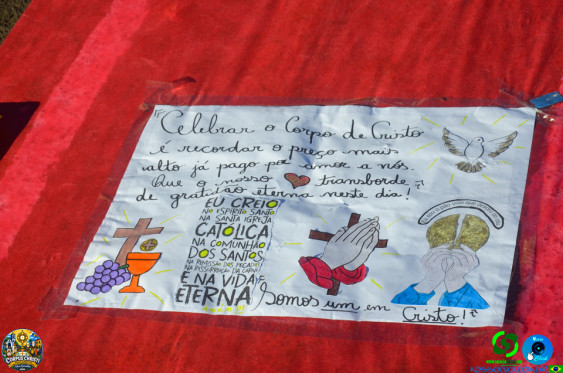 "Celebrar o Corpo de Cristo
é recordar o preço mais
alto já pago por amor a nós.
Que o nosso transborde
de gratidão eterna neste dia!"
EU CREIO
NO ESPÍRITO SANTO
NA SANTA IGREJA
CATÓLICA
NA COMUNHÃO
DOS SANTOS
NA REMISSÃO DOS PECADOS
NA RESSURREIÇÃO DA CARNE
E NA VIDA
ETERNA
Somos um em
Cristo!"
CORPUS CHRISTI